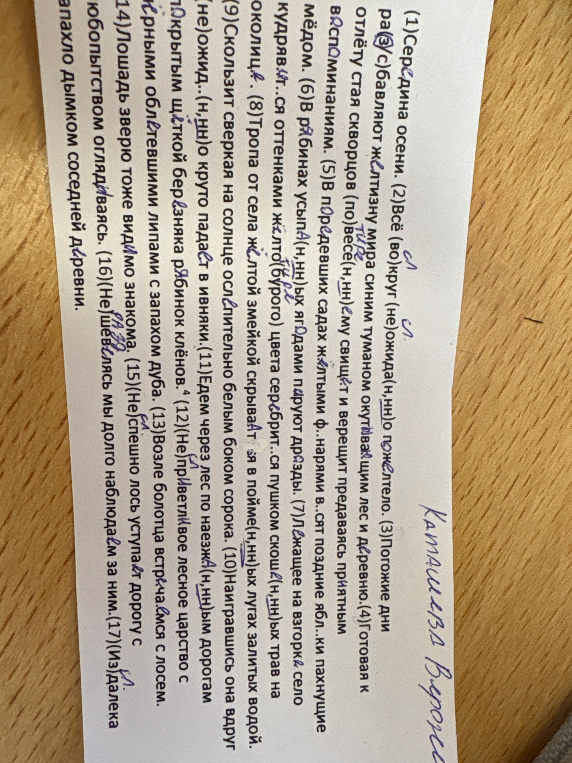 Каташевза Верони
(1)Середина осени. (2)Всё (во)круг (не)ожида(н,нн)о пожелтело. (3)Погожие дни
ра(з/с)бавляют желтизну мира синим туманом окутывающим лес и деревню.(4)Готовая к
отлёту стая скворцов (по)весе(н,нн)ему свищет и верещит предаваясь приятным
воспоминаниям. (5)В поредевших садах жёлтыми ф..нарями в..сят поздние ябл..ки пахнущие
мёдом. (6)В рябинах усыпа(н,нн)ых ягодами пируют дрозды. (7)Лежащее на взгорке село
кудрявит..ся оттенками жёлто(бурого) цвета серебрит..ся пушком скоше(н,нн)ых трав на
околице. (8)Тропа от села жёлтой змейкой скрывает ся в пойме(н,нн)ых лугах залитых водой.
(9)Скользит сверкая на солнце ослепительно белым боком сорока. (10)Наигравшись она вдруг
(не)ожид..(н,нн)о круто падает в ивняки.(11)Едем через лес по наезже(н,нн)ым дорогам
покрытым щёткой березняка рябинок клёнов. 4 (12)(Не)приветливое лесное царство с
чёрными облетевшими липами с запахом дуба. (13)Возле болотца встречаемся с лосем.
14)Лошадь зверю тоже видимо знакома. (15)(Не)спешно лось уступает дорогу с
юбопытством оглядываясь. (16)(Не)шевелясь мы долго наблюдаем за ним.(17)(Из)далека
апахло дымком соседней деревни.